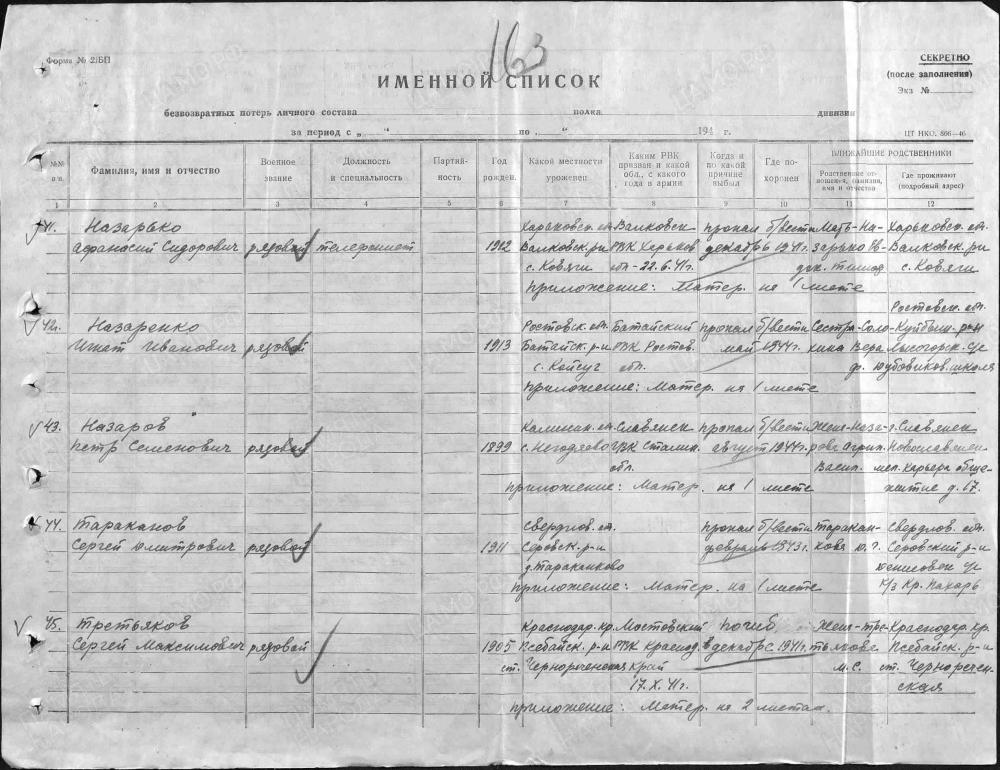 163
Форма № 2/БП
СЕКРЕТНО
(после заполнения)
Экз №
ИМЕННОЙ СПИСОК
безвозвратных потерь личного состава полка дивизии
за период с „ “ по „ “ 194 г.
ЦТ НКО. 866—46
№№ п/п.
Фамилия, имя и отчество
Военное звание
Должность и специальность
Партийность
Год рожден.
Какой местности уроженец
Каким РВК призван и какой обл., с какого года в армии
Когда и по какой причине выбыл
Где похоронен
БЛИЖАЙШИЕ РОДСТВЕННИКИ
Родственные отношения, фамилия, имя и отчество
Где проживают (подробный адрес)
1 2 3 4 5 6 7 8 9 10 11 12
41. Назарько Харьковск. обл. Валковск пропал б/вести Мать-На- Харьковск. обл.
Афанасий Сидорович рядовой телефонист 1912 Валковск. р-н РВК Харьков декабрь 1941г. зарько Ев- Валковск. р-н
с. Ковяги обл - 22.6.41г. с. Ковяги
приложение: Матер. на 1 листе
Ростовск. обл.
42. Назаренко Ростовск. обл. Батайский пропал б/вести Сестра-Соло- Куйбыш. р-н
Игнат Иванович рядовой 1913 Батайск. р-н РВК Ростов. май 1944г. кина Вера Лысогорск. с/с
с. Койсуг обл. школа
приложение: Матер. на 1 листе
43. Назаров Калинин. обл. Славянск пропал б/вести Жена-Наза- г. Славянск
Петр Семенович рядовой 1899 с. Негодяево ГВК Сталин. август 1944г. рова Агрип. Новославянск
обл. Васил. мел. карьера обще-
приложение: Матер. на 1 листе житие д. 67.
44. Тараканов Свердлов. обл. пропал б/вести Таракан- Свердлов. обл.
Сергей Дмитрович рядовой 1911 Серовск. р-н февраль 1943г. кова Серовский р-н
д. Тараканково с/с
приложение: Матер. на 1 листе к/з Кр. Пахарь
45. Третьяков Краснодар. кр. Мостовский погиб, Жена-тре- Краснодар. кр.
Сергей Максимович рядовой 1905 Псебайск. р-н РВК Краснод. в декабре 1941г. тьякова Псебайск. р-н
ст. Чернореченская край М. С. ст. Черноречен-
17.X.41г. ская
приложение: Матер. на 2 листах.